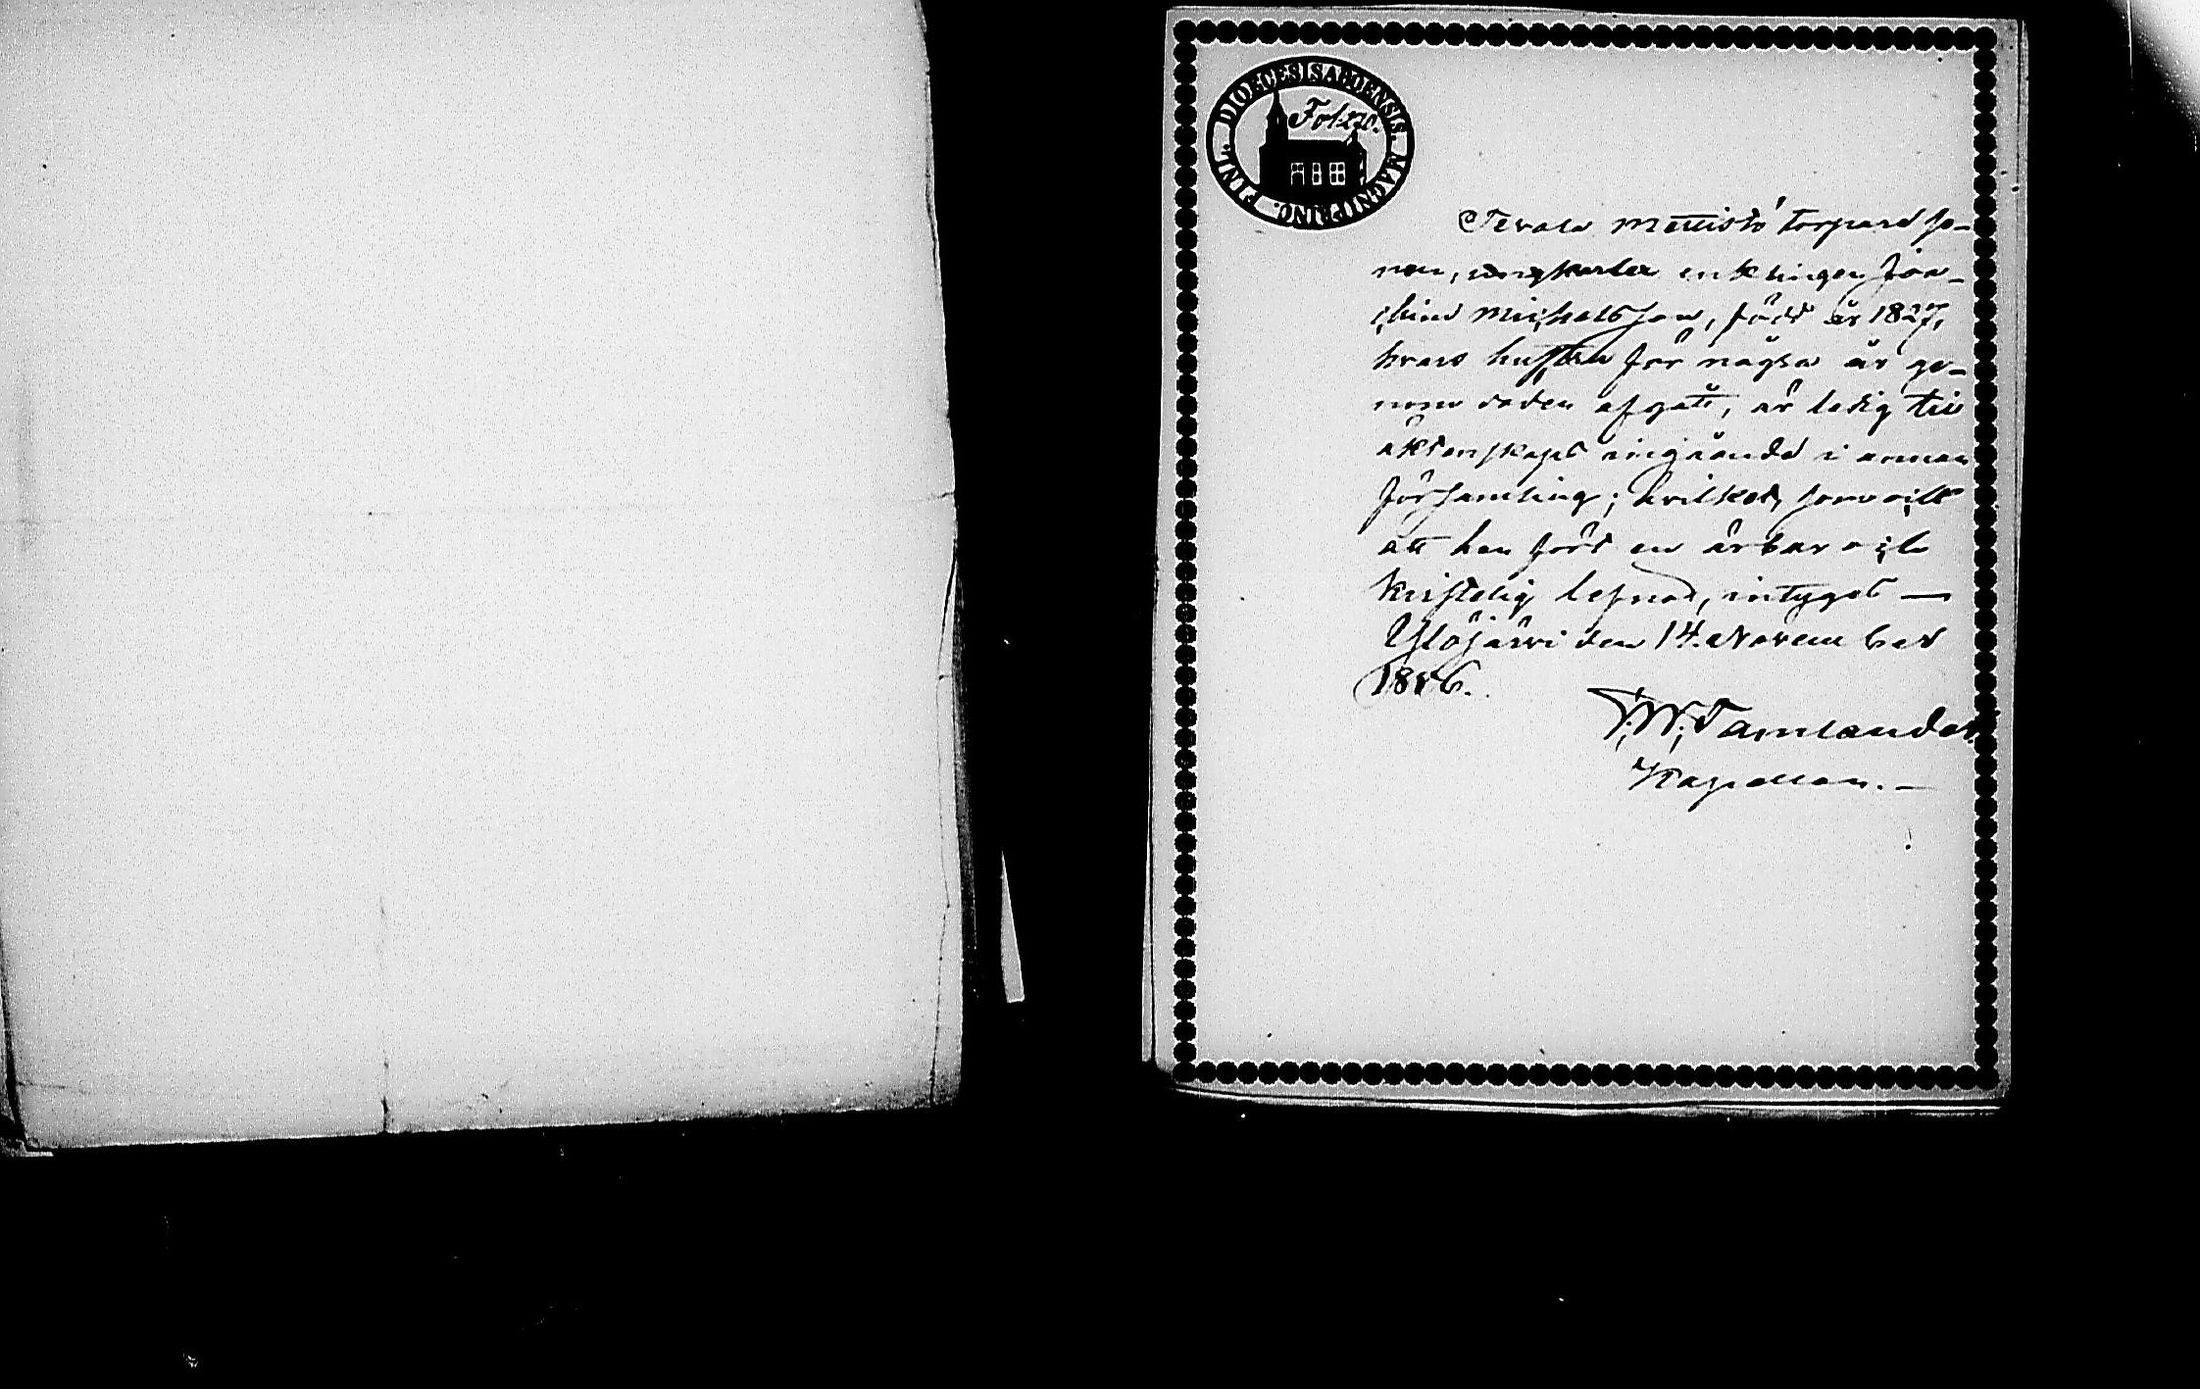 DIOECESIS ABOENSIS. MAGNI PRINC. FINL.
Fol. 270.
Tevala Mettistö torpard so-
nen, enklingen Joa-
chim Michelsson, född år 1827,
hvars hustru för några år ge-
nom döden afgått, är ledig till
äktenskaps ingående i annan
församling; hvilket, som ock
att han fört en ärbar och
kristelig lefnad, intygas —
Ylöjärvi den 14. November
1886.
F. W. Tamlander.
Kapellan. —